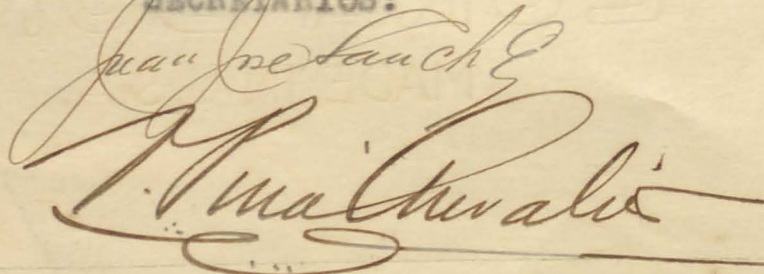 SECRETARIOS.
Juan José Sánchez
T. Pina Chevalier